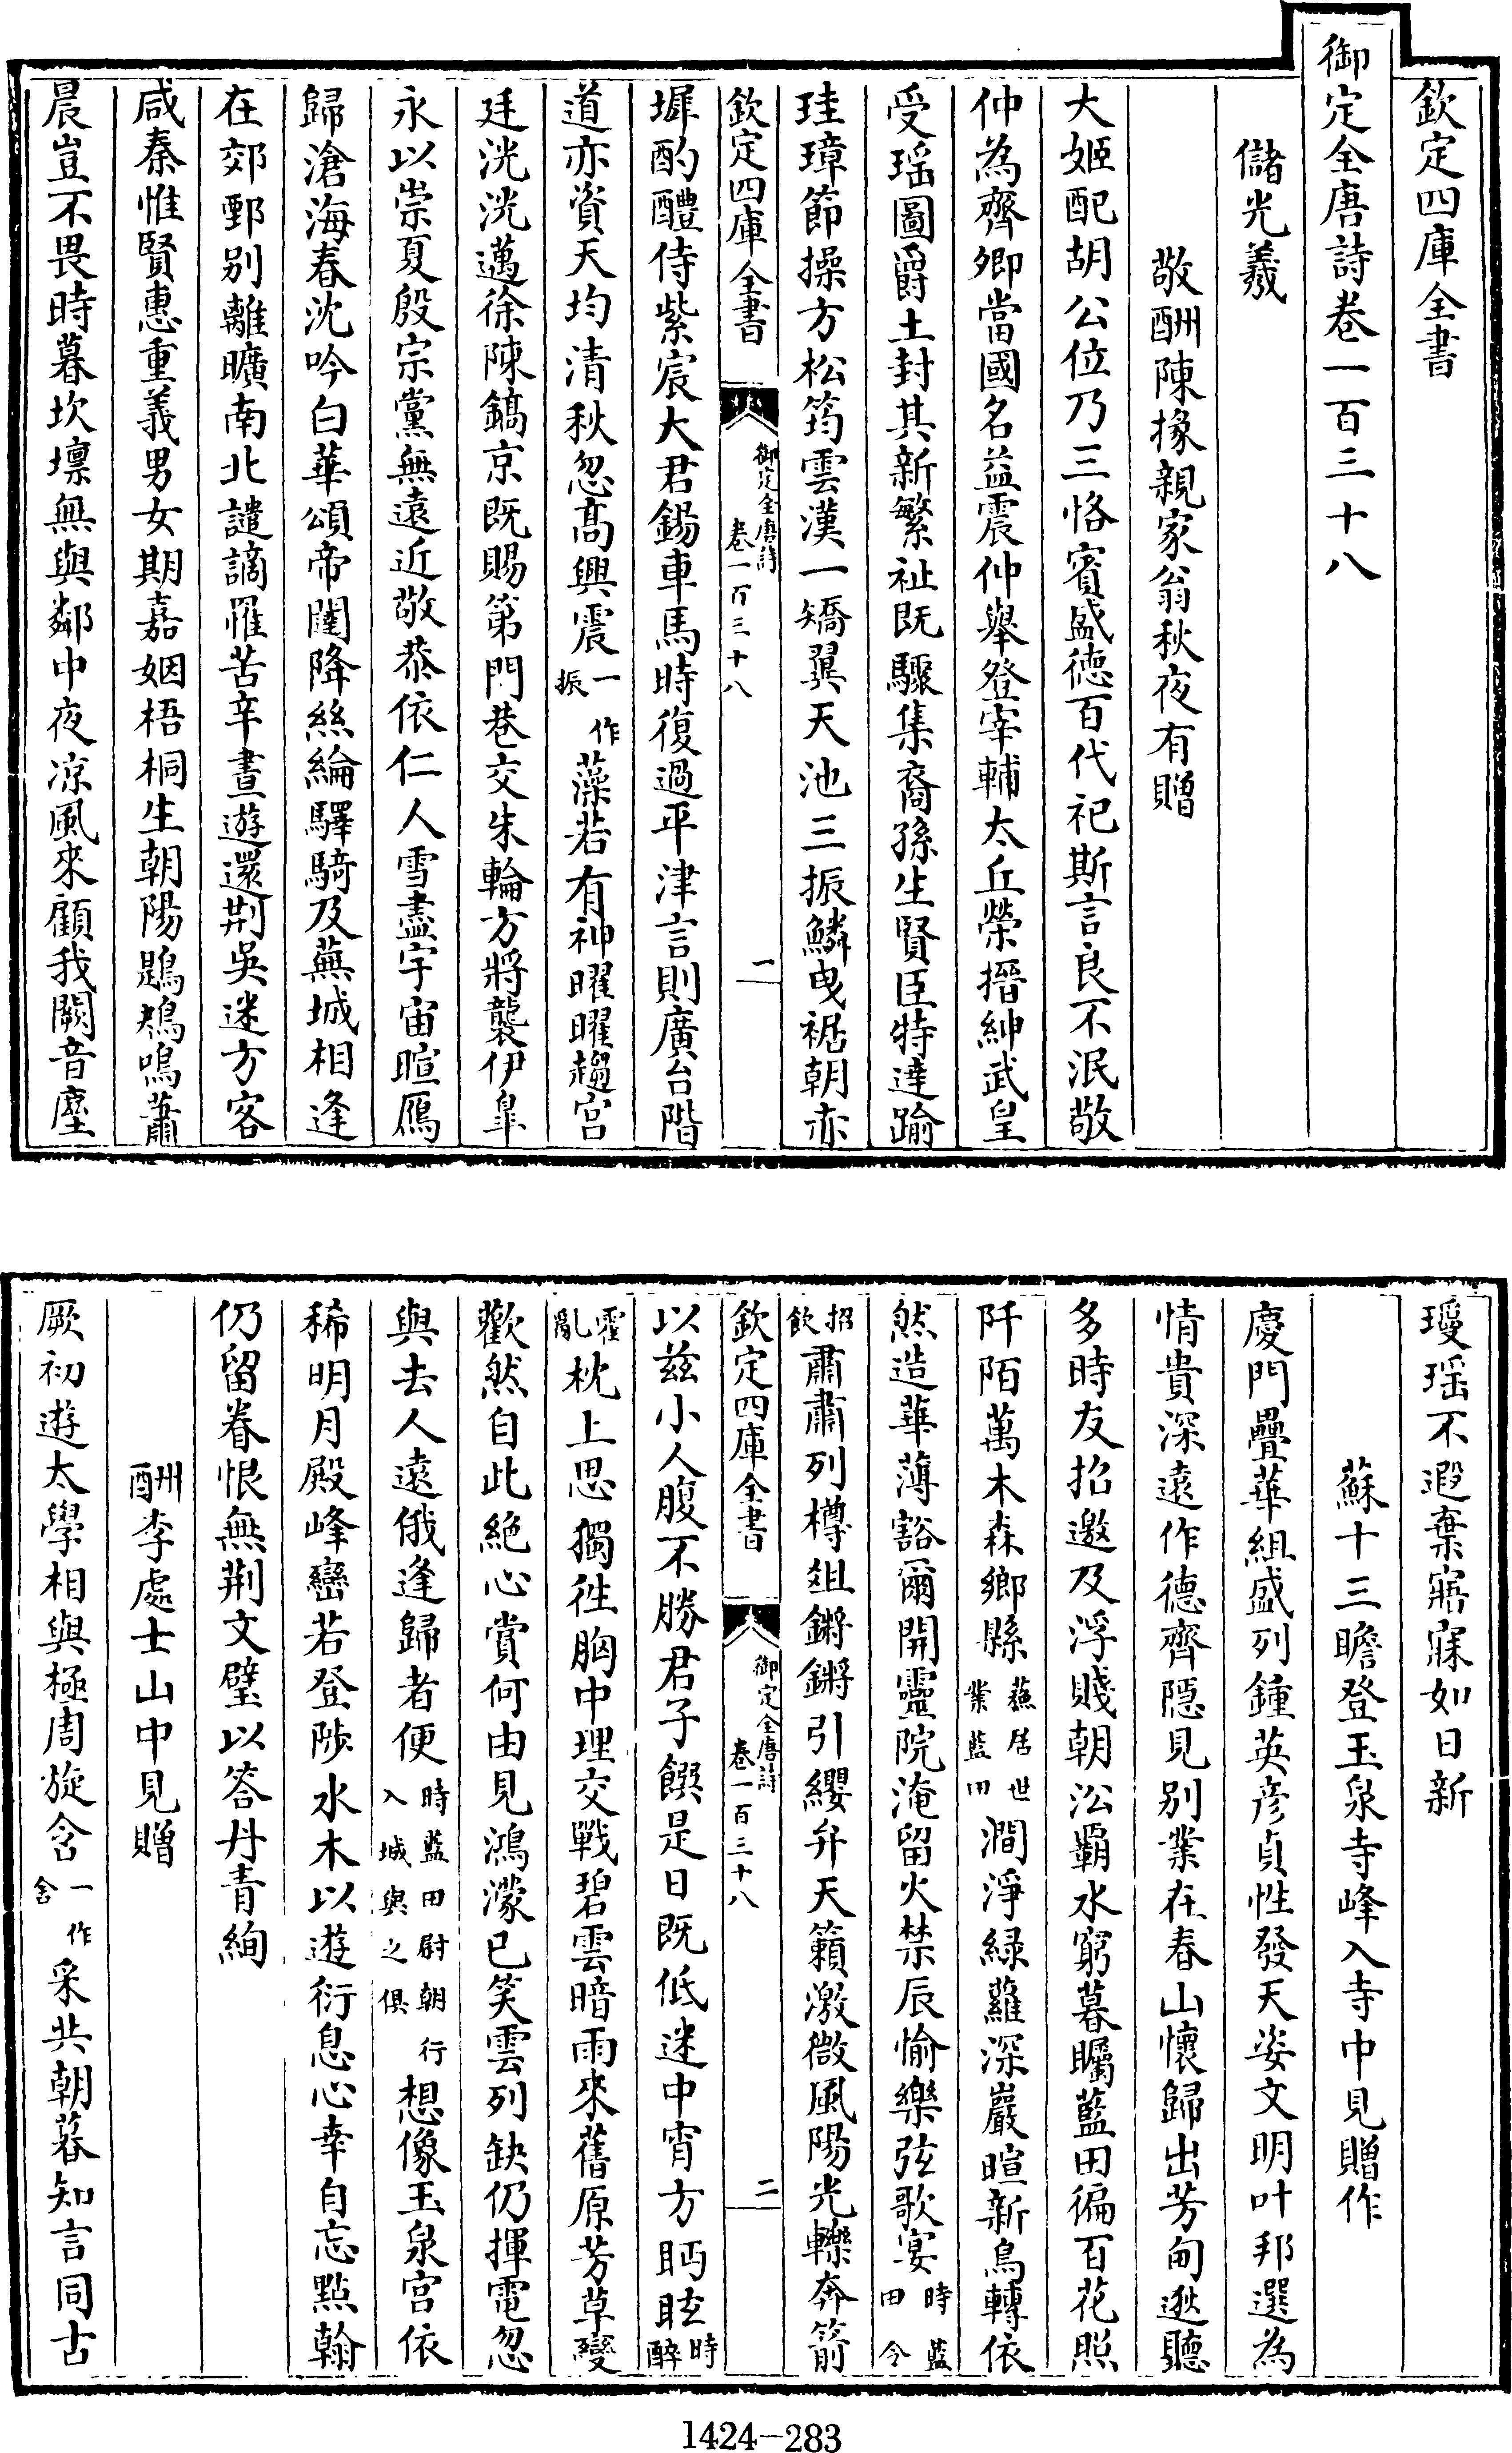 欽定四庫全書
御定全唐詩卷一百三十八
儲光羲
敬酬陳掾親家翁秋夜有贈
大姬配胡公位乃三恪賓盛德百代祀斯言良不泯敬
仲為齊卿當國名益震仲舉登宰輔太丘榮搢紳武皇
受瑶圖爵土封其新繁祉既驟集裔孫生賢臣特達踰
珪璋節操方松筠雲漢一矯翼天池三振鱗曳裾朝赤
欽定四庫全書
御定全唐詩
卷一百三十八
一
墀酌醴侍紫宸大君錫車馬時復過平津言則廣台階
道亦資天均清秋忽髙興震一作振藻若有神曜曜趨宫
廷洸洸邁徐陳鎬京既賜第門巷交朱輪方將襲伊皐
永以崇夏殷宗黨無遠近敬恭依仁人雪盡宇宙暄鴈
歸滄海春沈吟白華頌帝閽降絲綸驛騎及蕪城相逢
在郊鄄别離曠南北譴謫罹苦辛晝遊還荆吳迷方客
咸秦惟賢惠重義男女期嘉姻梧桐生朝陽鶗鴂鳴蕭
晨豈不畏時暮坎壈無與鄰中夜凉風來顧我闕音塵
瓊瑶不遐棄寤寐如日新
蘇十三瞻登玉泉寺峰入寺中見贈作
慶門疊華組盛列鍾英彦貞性發天姿文明叶邦選為
情貴深遠作德齊隱見别業在春山懷歸出芳甸逖聽
多時友招邀及浮賤朝沿霸水窮暮矚藍田徧百花照
阡陌萬木森鄉縣蘇居世業藍田澗淨緑蘿深巖暄新鳥轉依
然造華薄豁爾開靈院淹留火禁辰愉樂弦歌宴時藍田令
招飲肅肅列樽俎鏘鏘引纓弁天籟激微風陽光轢奔箭
欽定四庫全書
御定全唐詩
卷一百三十八
二
以兹小人腹不勝君子饌是日既低迷中宵方眄眩時醉
霍亂枕上思獨往胸中理交戰碧雲暗雨來舊原芳草變
歡然自此絶心賞何由見鴻濛已笑雲列缺仍揮電忽
與去人遠俄逢歸者便時藍田尉朝行入城與之俱想像玉泉宫依
稀明月殿峰巒若登陟水木以遊衍息心幸自忘點翰
仍留眷恨無荆文璧以答丹青絢
酬李處士山中見贈
厥初遊太學相與極周旋含一作舍采共朝暮知言同古
1424-283